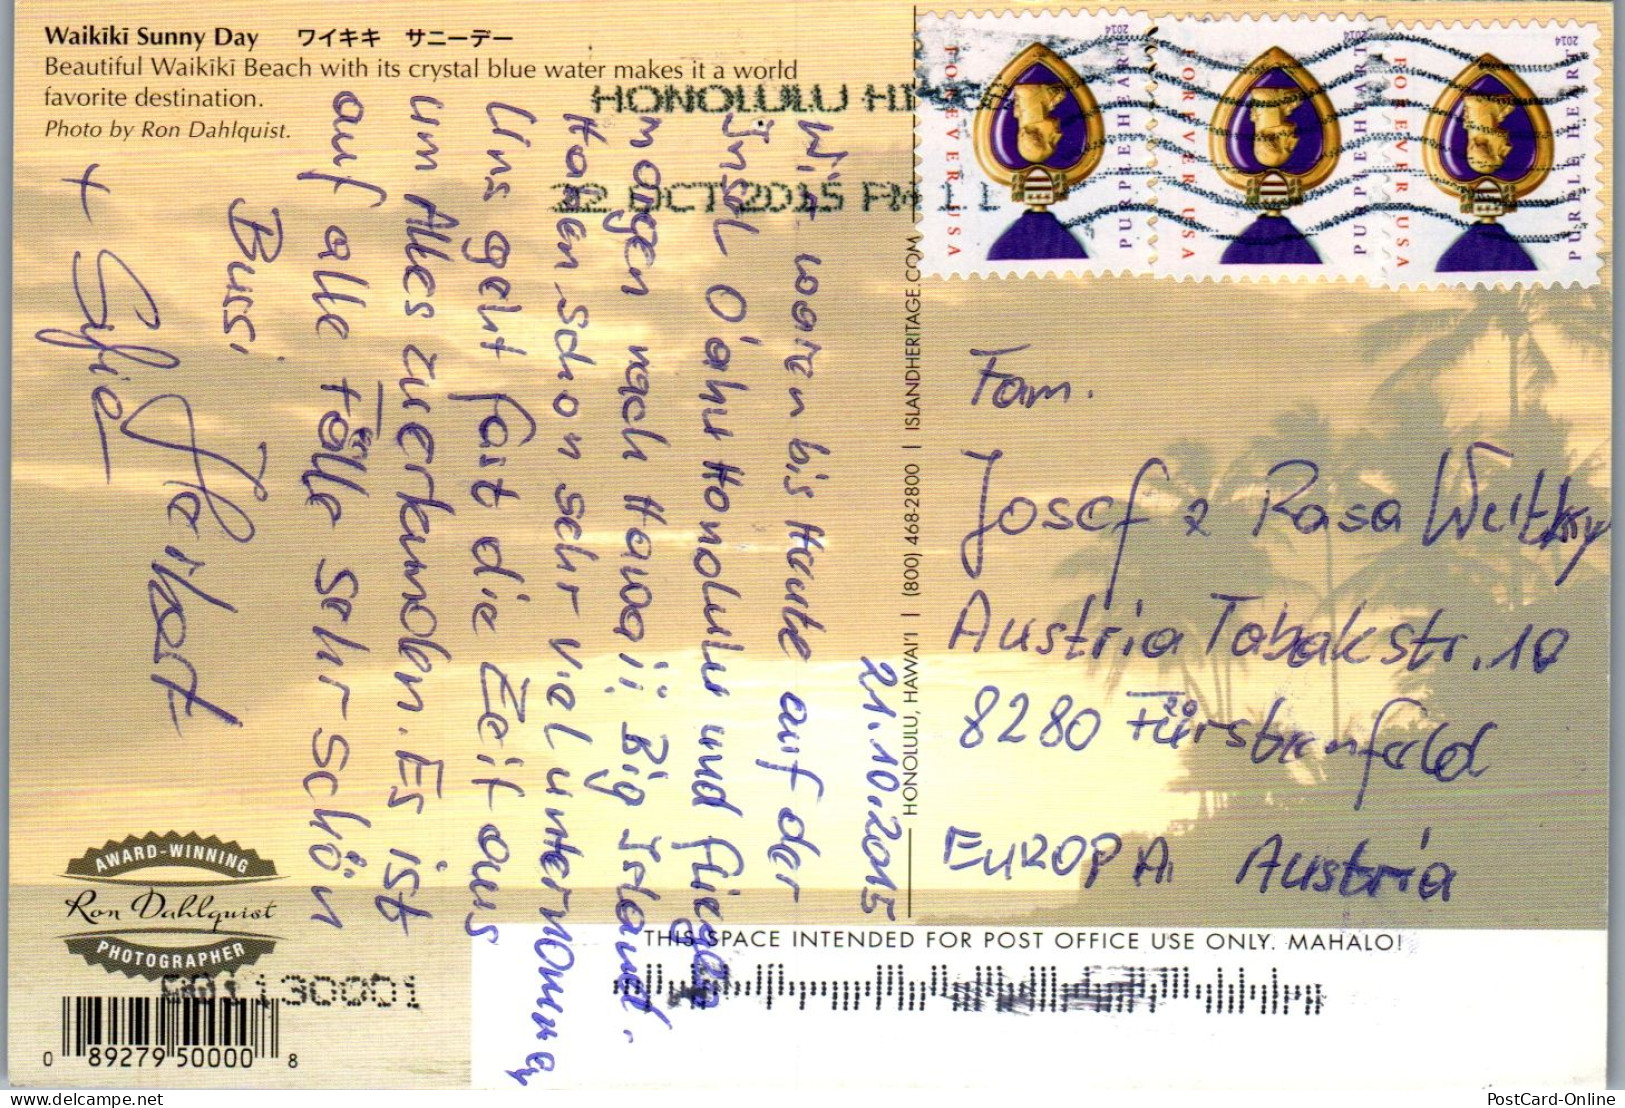 Waikīkī Sunny Day ワイキキ サニーデー
Beautiful Waikīkī Beach with its crystal blue water makes it a world
favorite destination.
Photo by Ron Dahlquist.
HONOLULU HI
22 OCT 2015 PM 1 L
FOREVER USA
PURPLE HEART
2014
FOREVER USA
PURPLE HEART
2014
FOREVER USA
PURPLE HEART
2014
21.10.2015
Wir waren bis Heute auf der
Insel O'ahu Honolulu und fliegen
morgen nach Hawaii Big Island.
Haben schon sehr viel unternommen
Uns geht fast die Zeit aus
um Alles zu erkunden. Es ist
auf alle Fälle sehr schön
Bussi
+ Sylvie
HONOLULU, HAWAI'I | (800) 468-2800 | ISLANDHERITAGE.COM
Fam.
Josef & Rosa
Austria Tabakstr. 10
8280 Fürstenfeld
EUROPA Austria
AWARD-WINNING
Ron Dahlquist
PHOTOGRAPHER
THIS SPACE INTENDED FOR POST OFFICE USE ONLY. MAHALO!
0 89279 50000 8
PostCard-Online